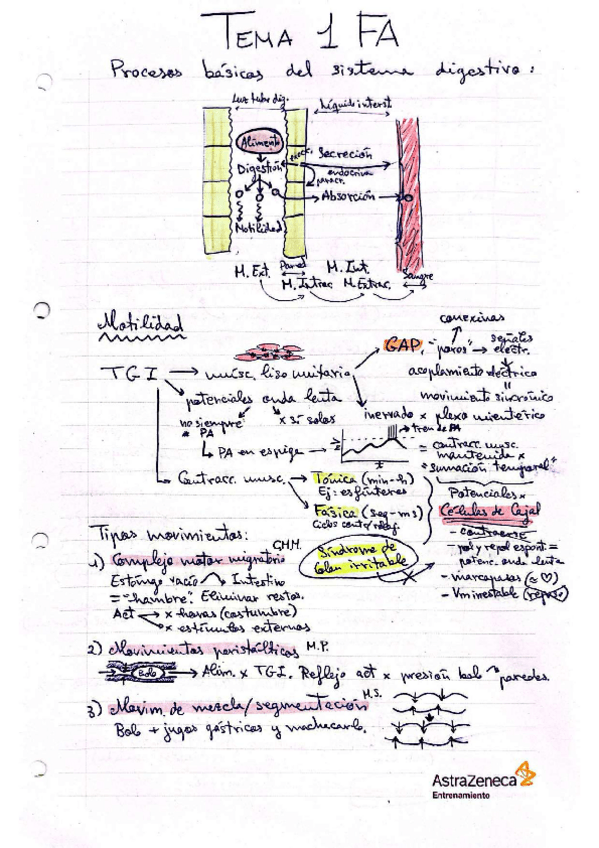 TEMA 1 FA
Procesos básicos del sistema digestivo:
Luz tubo dig. Líquido interst
Alimento
Digestión
exocr. Secreción
endocrina
paracr.
Absorción
Motilidad
M. Ext. Pared M. Int. Sangre
M. Intrac. M. Extrac.
Motilidad
conexinas
GAP, "poros" → señales
electr.
TGI → músc. liso unitario
acoplamiento eléctrico
=
movimiento sincrónico
potenciales onda lenta
no siempre
≠ PA
x sí solos
inervado x plexo mientérico
tren de PA
PA en espiga
t
= contracc. musc.
mantenida x
"sumación temporal"
Contracc. musc.
Tónica (min-h)
Ej: esfínteres
Fásica (seg-ms)
Ciclos contr/relaj.
Potenciales x
Células de Cajal
- contraerse
pol y repol espont. =
potenc. onda lenta
- marcapasos (≈ ♡)
- Vm inestable (reposo)
Síndrome de
Colon irritable
Tipos movimientos:
1) Complejo motor migratorio C.M.M.
Estómgo vacío Intestino
= "hambre". Eliminar restos.
Act x horas (costumbre)
x estímulos externos
2) Movimientos peristálticos M.P.
Bolo → Alim. x TGI. Reflejo act x presión bolo paredes.
3) Movim. de mezcla/segmentación M.S.
Bolo + jugos gástricos y machacarlo.
AstraZeneca
Entrenamiento